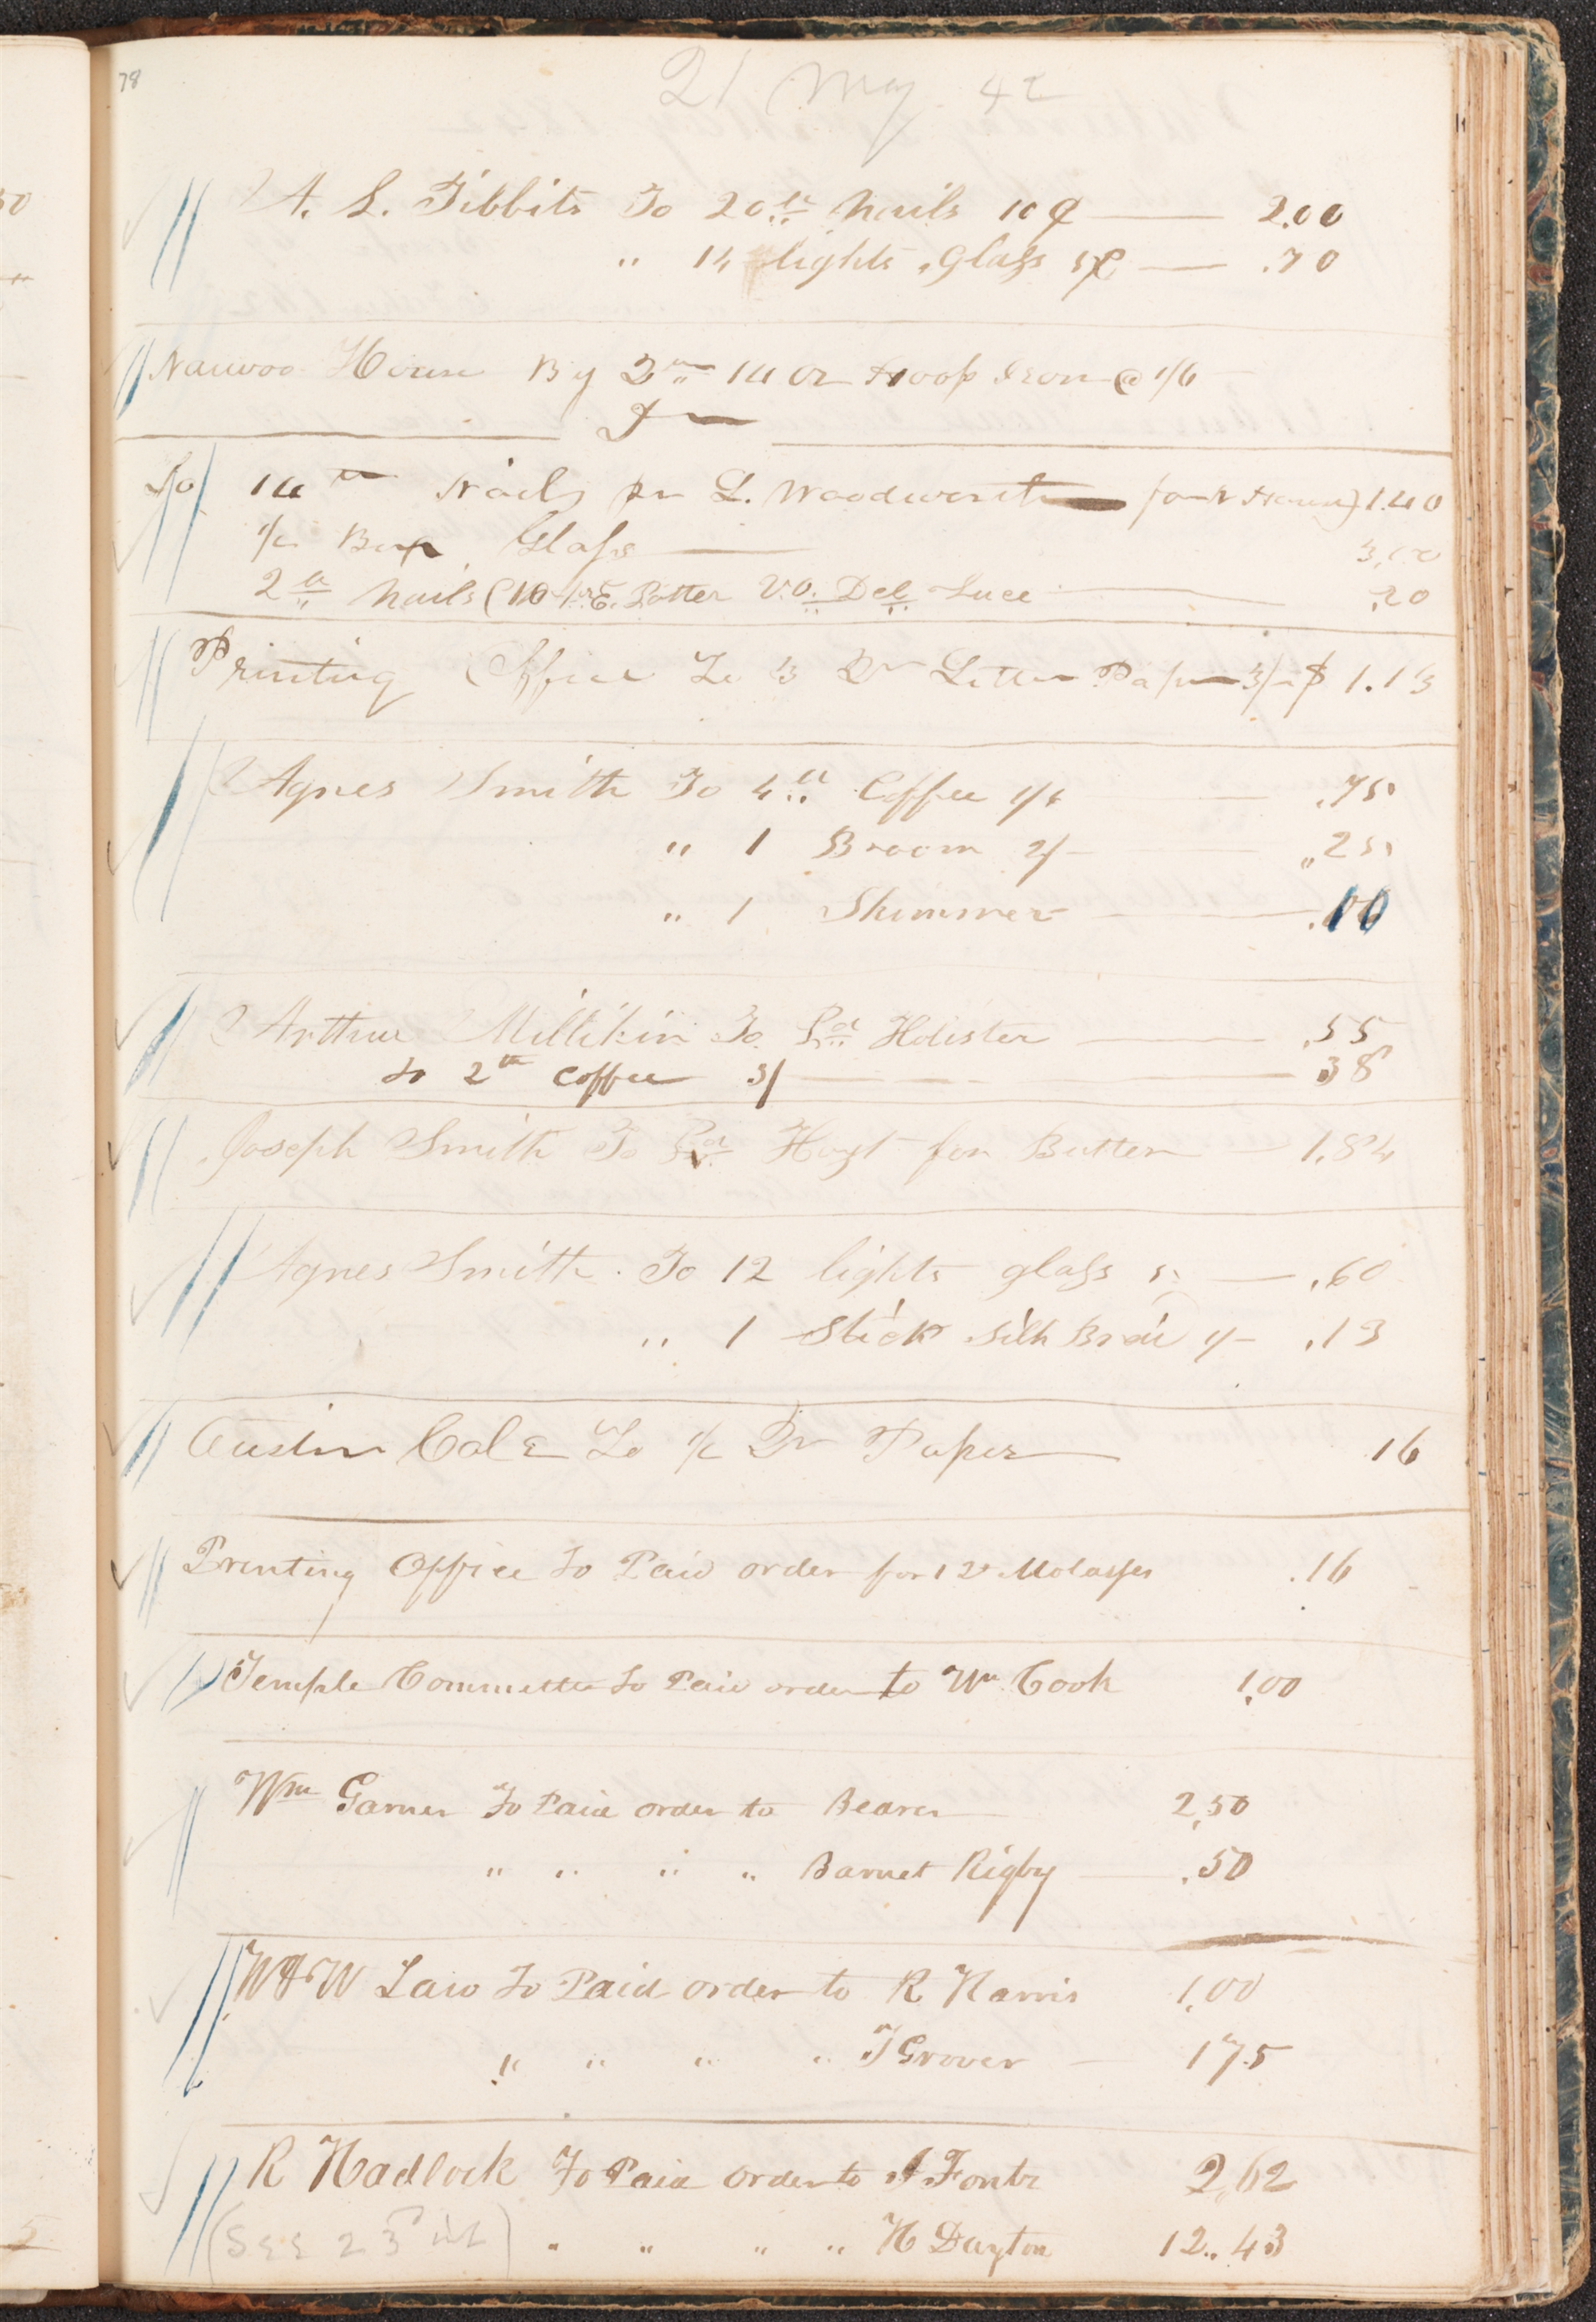 78
21 May 42
A. L. Tibbits To 20 lb Nails 10¢ — 2.00
" 14 lights Glass 5¢ — .70
Nauvoo House By 2 lb 14 oz Hoop Iron @ 1/6
To 14 lb Nails pr L. Woodworth — for N House) 1.40
1/2 Box Glass — 3,00
2 lb Nails (10 E. Potter V.O. Del Luce — .20
Printing Office To 3 Qr Letter Paper 3/ $ 1.13
Agnes Smith To 4 lb Coffee 1/6 — .75
" 1 Broom 2/- — .25
" 1 Skimmer — .10
Arthur Millikin To Pd Holister — .55
To 2 lb Coffee 3/ — 38
Joseph Smith To Pd Hoyt for Butter — 1.84
Agnes Smith. To 12 lights glass 5 — .60
" 1 Stick Silk Braid 1/- .13
Austin Cole To 1/2 Qr Paper — 16
Printing Office To Paid order for Molasses .16
Temple Committee To Paid order to Wm Cook 1.00
Wm Garner To Paid order to Bearer 2.50
" " " " Barnet Rigby — .50
W & W Law To Paid order to R Harris 1.00
" " " " T Grover — 175
R Hadlock To Paid order to 2,62
(See 23d " " " " H Dayton 12..43
5